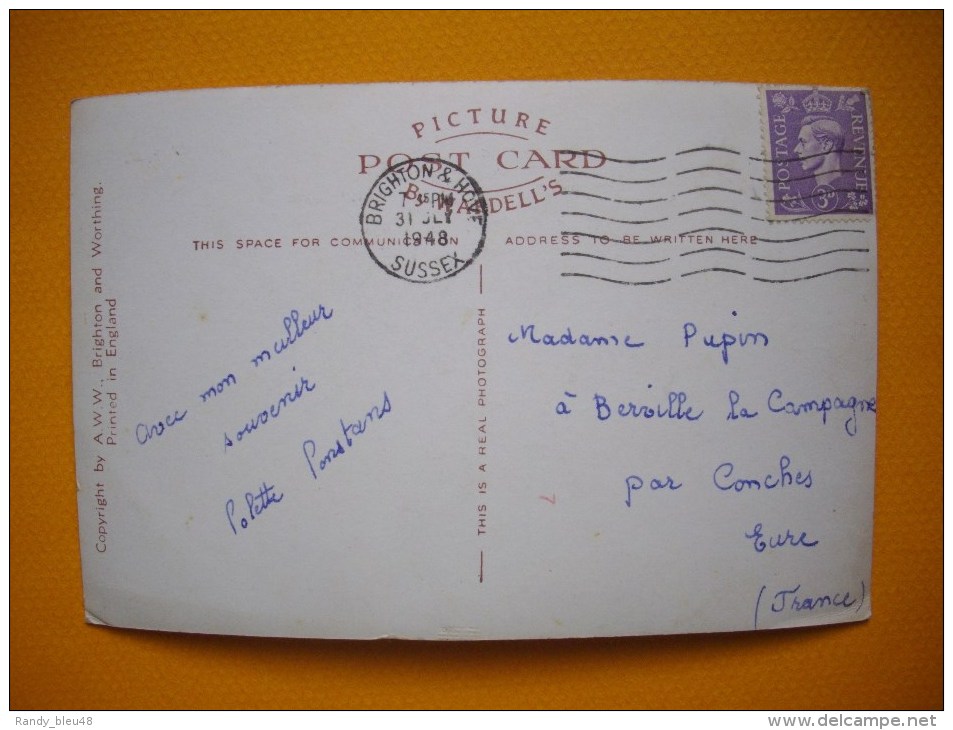 PICTURE
POST CARD
BY WARDELL'S
BRIGHTON & HOVE
7 15 PM
31 JLY
1948
SUSSEX
POSTAGE
REVENUE
3D
THIS SPACE FOR COMMUNICATION
ADDRESS TO BE WRITTEN HERE
Copyright by A.W.W., Brighton and Worthing.
Printed in England
THIS IS A REAL PHOTOGRAPH
avec mon meilleur
souvenir
Polette Constans
Madame Pupin
à Berville la Campagne
par Conches
Eure
(France)
Randy_bleu48
http://www.delcampe.net